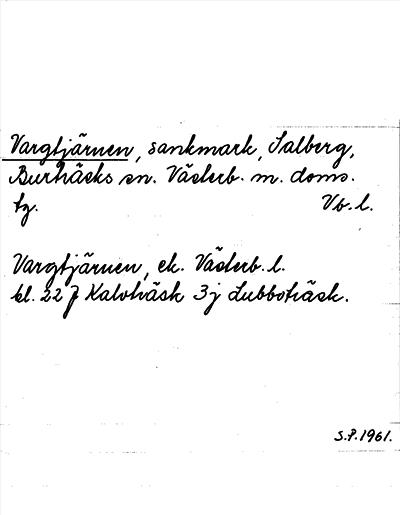 Vargtjärnen, sankmark, Salberg,
Burträsks sn. Västerb. m. doms.
tg. Vb. l.
Vargtjärnen, ek. Västerb. l.
bl. 22 j Kalvträsk 3 j Lubboträsk.
S.P. 1961.